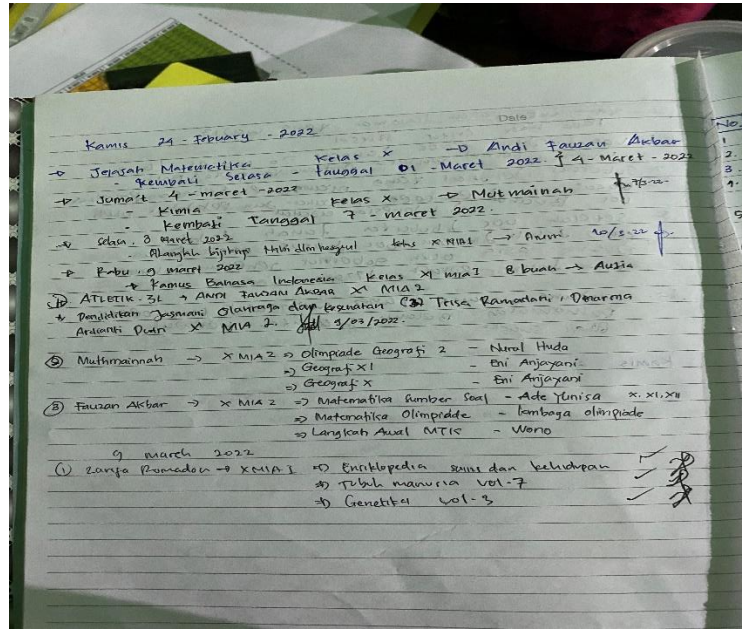 Date
No.
Kamis 24 - February - 2022
Jelajah Matematika Kelas X → Andi Fauzan Akbar
- Kembali Selasa - tanggal 01 - Maret 2022. 4 - Maret - 2022
Juma't 4 - maret - 2022
- Kimia Kelas X → Mutmainah 7/3-22
- Kembali Tanggal 7 - maret 2022.
Selasa, 8 maret 2022
- Alangkah kelas X MIA 1 → 10/3-22
Rabu, 9 maret 2022
→ Kamus Bahasa Indonesia Kelas XI MIA I 8 buah → Aulia
ATLETIK - 31 → ANDI FAUZAN AKBAR X MIA 2
* Pendidikan Jasmani Olahraga dan Kesehatan Trisa Ramadani, Denarma
Ardianti Putri X MIA 2. 9/03/2022.
② Muthmainnah → X MIA 2 ⇒ Olimpiade Geografi 2 - Nurul Huda
⇒ Geografi XI - Eni Anjayani
⇒ Geografi X - Eni Anjayani
③ Fauzan Akbar → X MIA 2 ⇒ Matematika Sumber Soal - Ade Yunisa X, XI, XII
⇒ Matematika Olimpidde - lembaga olimpiade
⇒ Langkah Awal MTK - Wono
9 march 2022
① Zanja Romadon → X MIA I ⇒ Ensiklopedia sains dan kehidupan
⇒ Tubuh manusia vol - 7
⇒ Genetika vol - 3